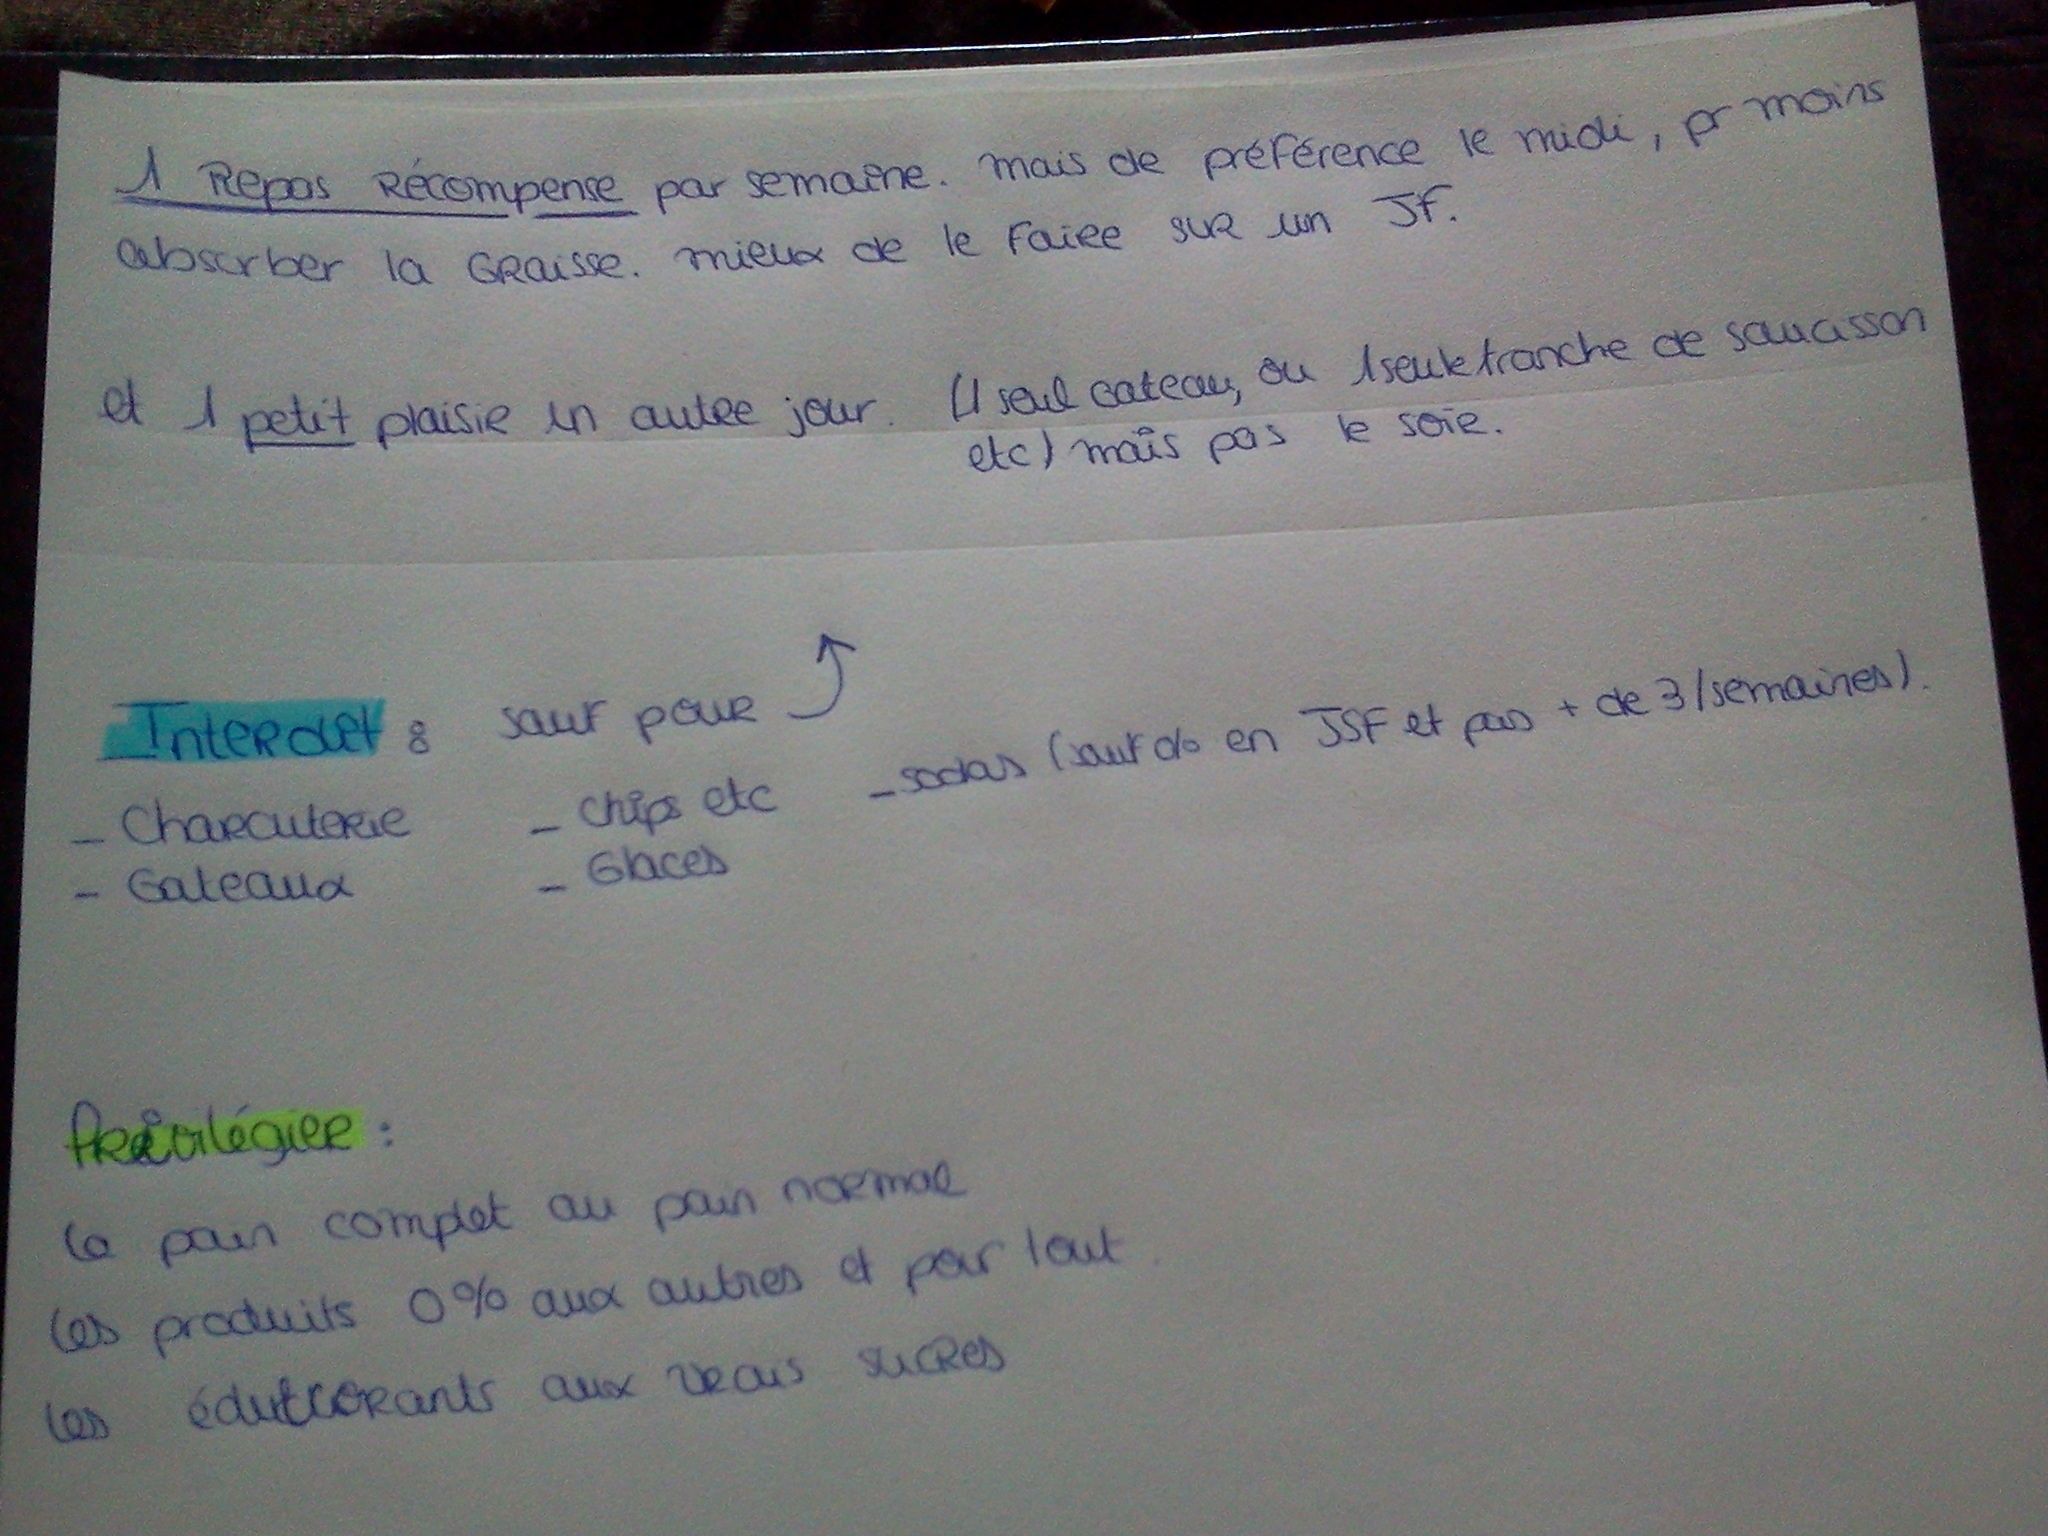 1 Repas Récompense par semaine. mais de préférence le midi, pr moins
absorber la Graisse. mieux de le faire sur un JF.
et 1 petit plaisir un autre jour. (1 seul gateau, ou 1 seule tranche de saucisson
etc) mais pas le soir.
Interdit : sauf pour
- Charcuterie - chips etc - sodas (sauf 0% en JSF et pas + de 3/semaines).
- Gateaux - Glaces
Privilégier :
le pain complet au pain normal
les produits 0% aux autres et pour tout.
les édulcorants aux vrais sucres